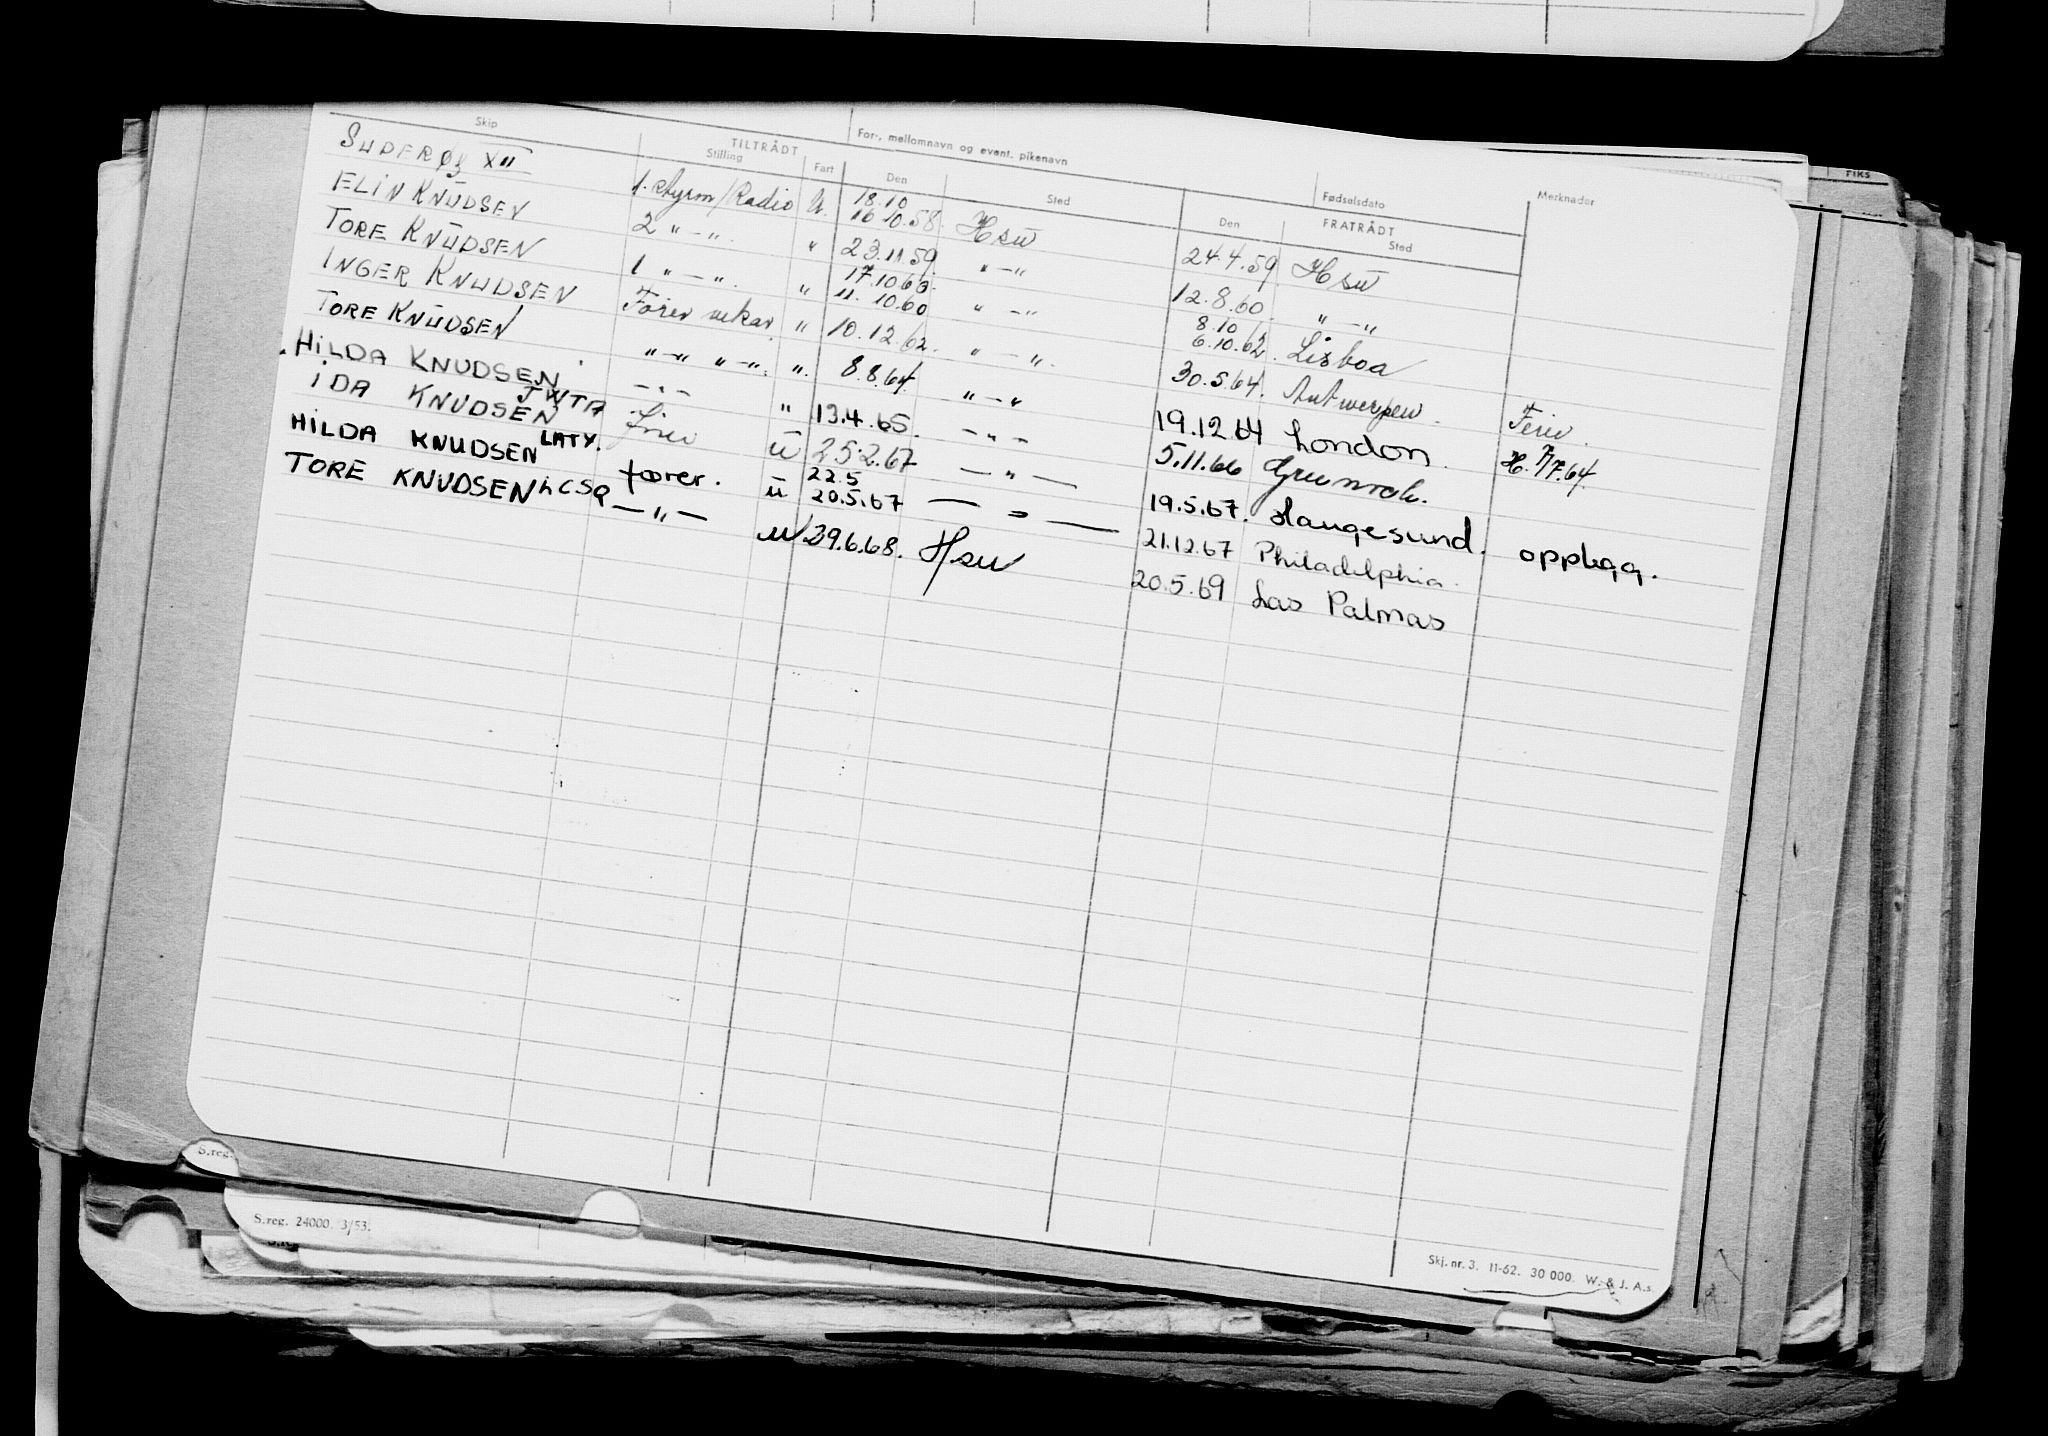 For-, mellomnavn og event. pikenavn
Fødselsdato
Merknader
FIKS
Skip
TILTRÅDT
FRATRÅDT
Stilling Fart Den Sted Den Sted
SUDERØY XII 1. styrm/Radio U. 18.10 16.10.58. Hsu 24.4.59 Hsu
ELIN KNUDSEN 2 " - ". " 23.11.59. " - " 12.8.60. " - "
TORE KNUDSEN 1 " - ". " 17.10.60. 11.10.60 " - " 8.10 6.10.62. Lisboa
INGER KNUDSEN Fører vikar. " 10.12.62. " - ". 30.5.64. Antwerpen. Ferie.
TORE KNUDSEN " - " " - ". ". 8.8.64. " - " 19.12.64 London. H. 7/7.64.
HILDA KNUDSEN - " - " 13.4.65. - " - 5.11.66
IDA KNUDSEN JWTA fører ü 25.2.67 - " - 19.5.67. Haugesund. opplegg.
HILDA KNUDSEN LATY. fører. ü 22.5 20.5.67 - " - 21.12.67 Philadelphia.
TORE KNUDSEN LCSQ - " - 29.6.68. Hsu 20.5.69 Las Palmas
S.reg.
S.reg. 24000. 3/53.
Skj. nr. 3. 11-62. 30 000. W. & J. A.s.